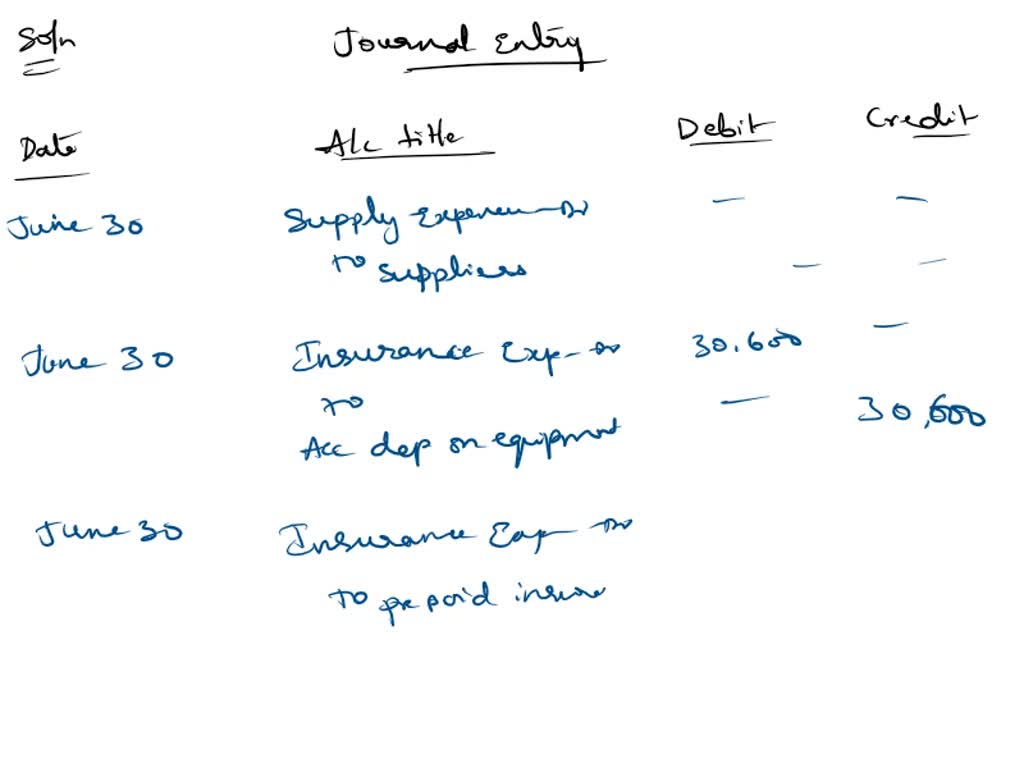 Soln Journal Entry
Date A/c title Debit Credit
June 30 Supply Expenses Dr — —
to suppliers — —
June 30 Insurance Exp - Dr 30,600 —
to — 30,600
Acc dep on equipment
June 30 Insurance Exp - Dr
to prepaid